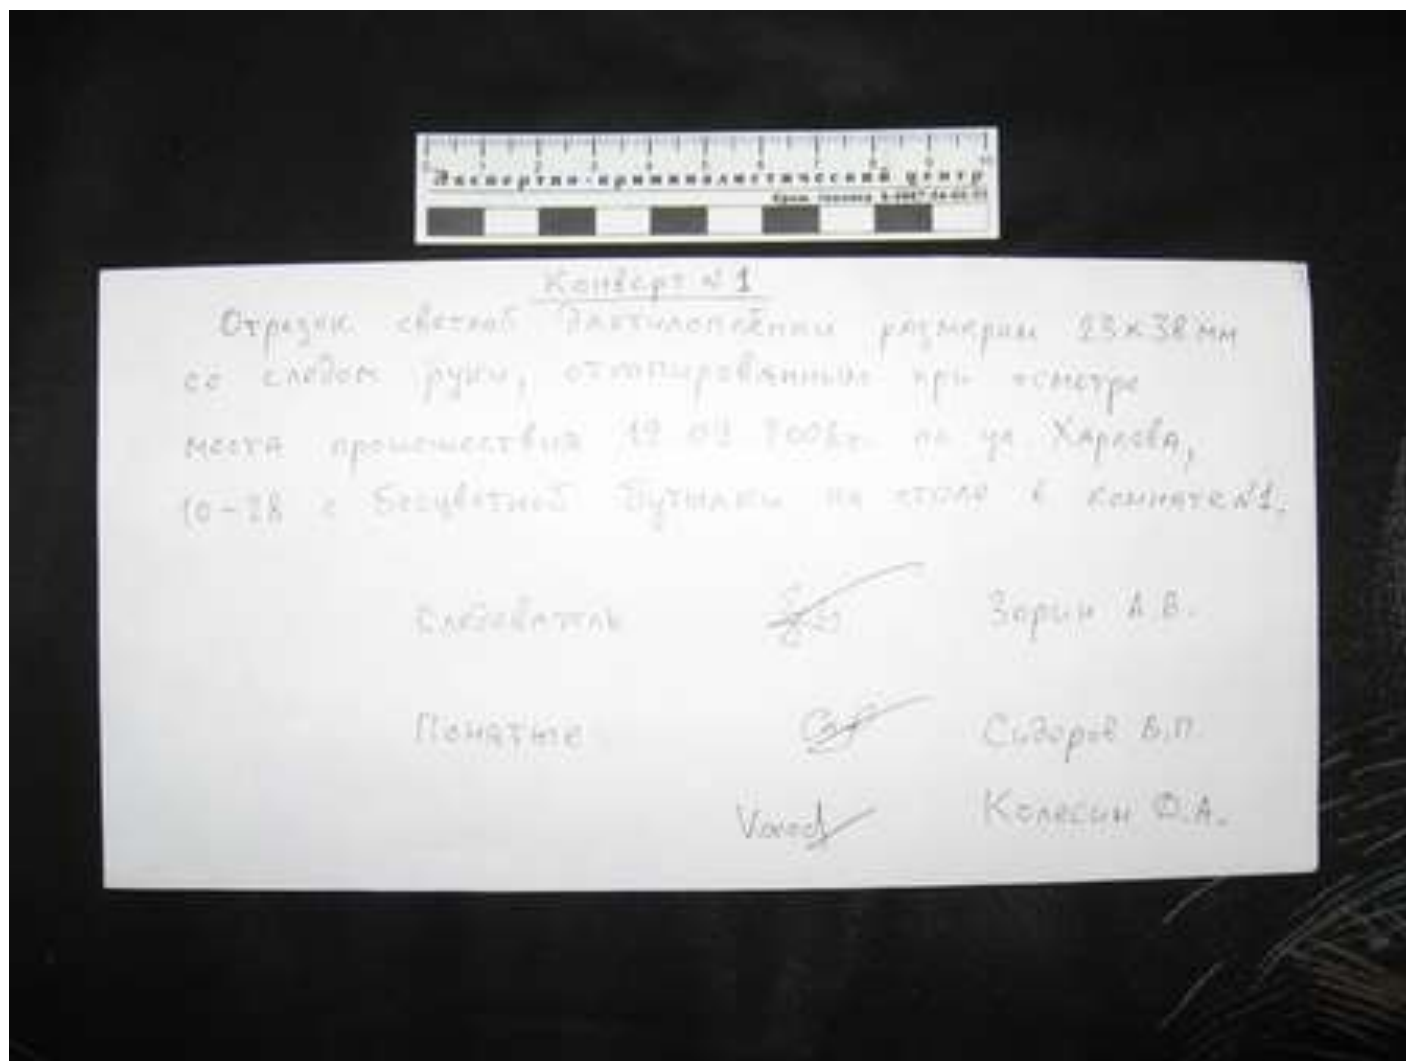 0 1 2 3 4 5 6 7 8 9 10
Экспертно-криминалистический центр
Конверт №1
Отрезок светлой дактилоплёнки размерам 23х38 мм
со следом руки, откопированным при осмотре
места происшествия по ул Харлова,
10-28 с бесцветной бутылки на столе в комнате №1.
Следователь Зорин А.В.
Понятые Сидоров В.П.
Колесин О.А.